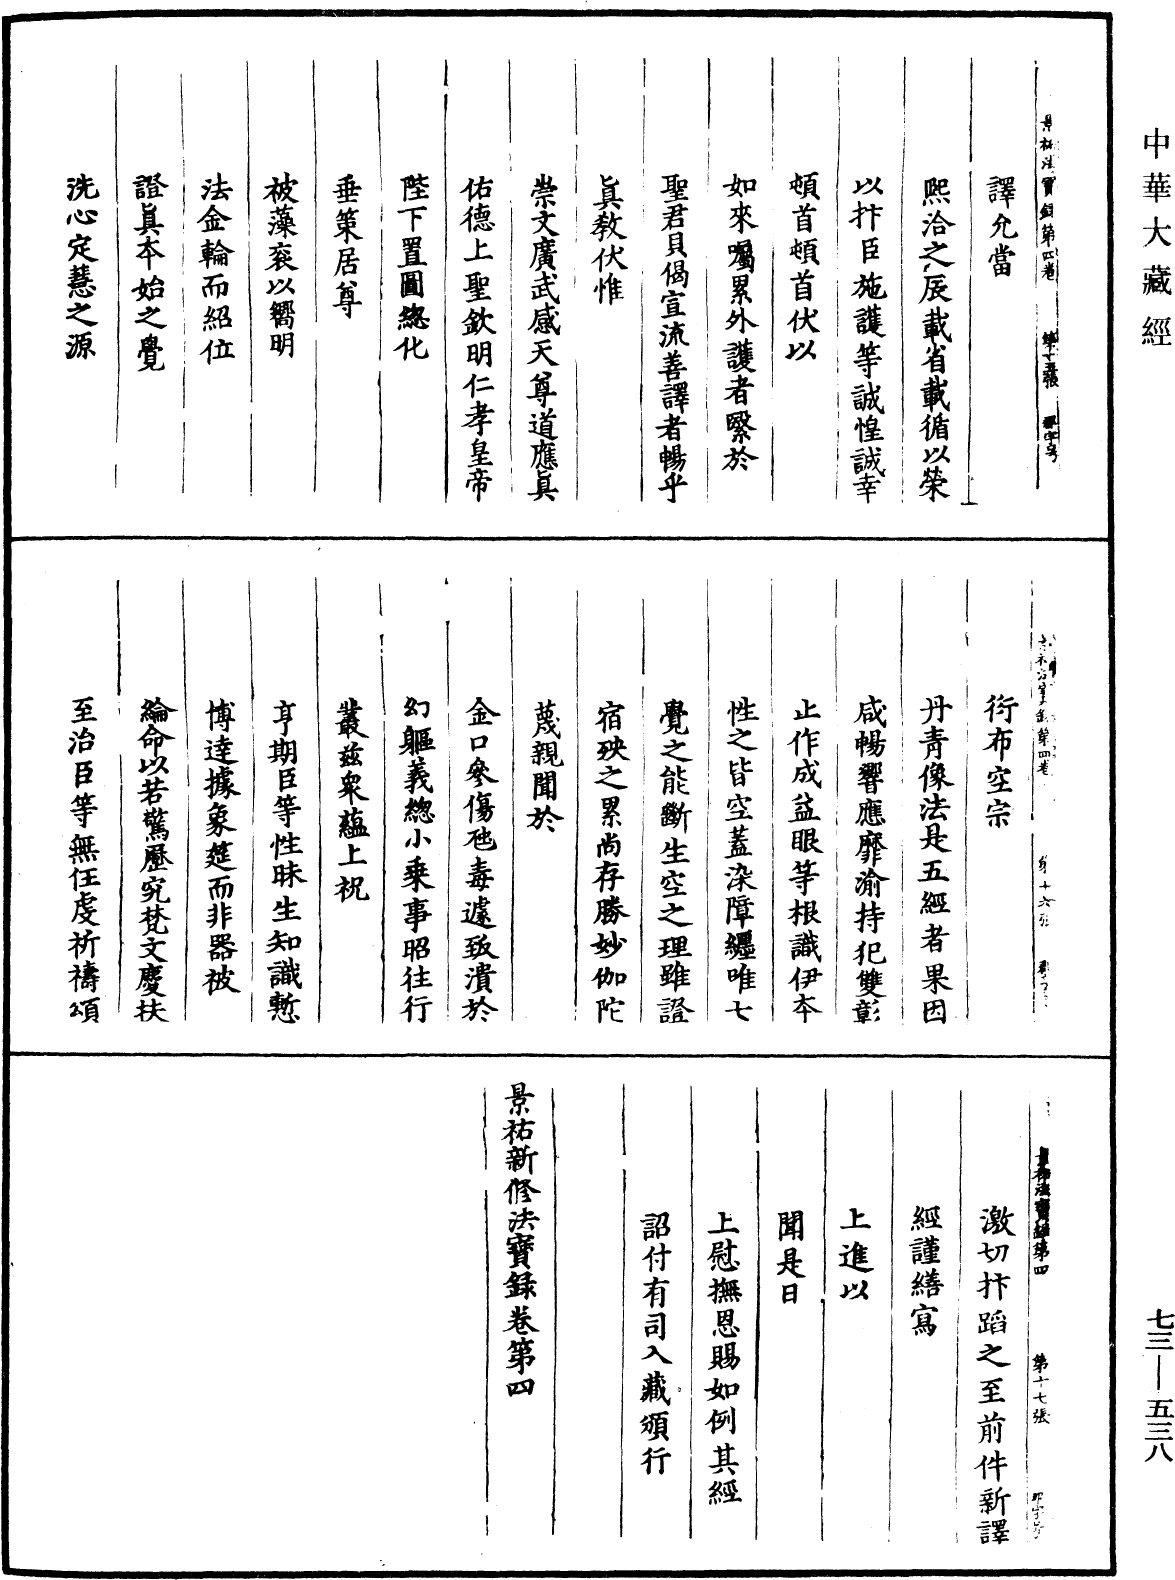 中華大藏經
景祐法寶錄第四卷 第十五張
譯允當
熙洽之辰載省載循以榮
以抃臣施護等誠惶誠幸
頓首頓首伏以
如來囑累外護者繄於
聖君貝偈宣流善譯者暢乎
眞教伏惟
崇文廣武感天尊道應眞
佑德上聖欽明仁孝皇帝
陛下置圓緫化
垂策居尊
被藻衮以嚮明
法金輪而紹位
證眞本始之覺
洗心定慧之源
第十六張
衍布空宗
丹青像法是五經者果因
咸暢響應靡渝持犯雙彰
止作成益眼等根識伊本
性之皆空蓋染障纏唯七
覺之能斷生空之理雖證
宿殃之累尚存勝妙伽陀
蔑親聞於
金口參傷虵毒遽致潰於
幻軀義緫小乗事昭往行
叢兹衆藴上祝
亨期臣等性昧生知識慙
博達據象筵而非器被
綸命以若驚歷究梵文慶扶
至治臣等無任虔祈禱頌
第十七張
激切抃蹈之至前件新譯
經謹繕寫
上進以
聞是日
上慰撫恩賜如例其經
詔付有司入藏頒行
景祐新修法寶録卷第四
七三—五三八